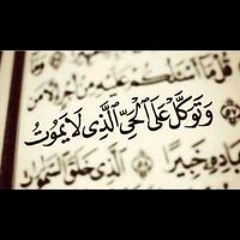 قُلْ مَآ أَسْـَٔلُكُمْ عَلَيْهِ مِنْ أَجْرٍ إِلَّا مَن
وَتَوَكَّلْ عَلَى ٱلْحَىِّ ٱلَّذِى لَا يَمُوتُ
بَادِهِۦ خَبِيرًا ٱلَّذِى خَلَقَ ٱلسَّمَٰوَٰتِ